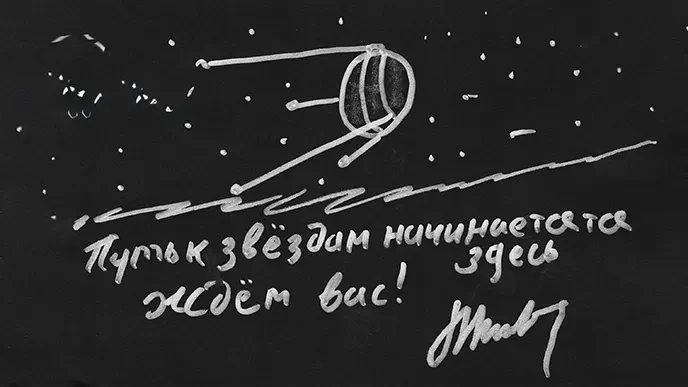 Путь к звёздам начинаетата
здесь
Ждём вас!